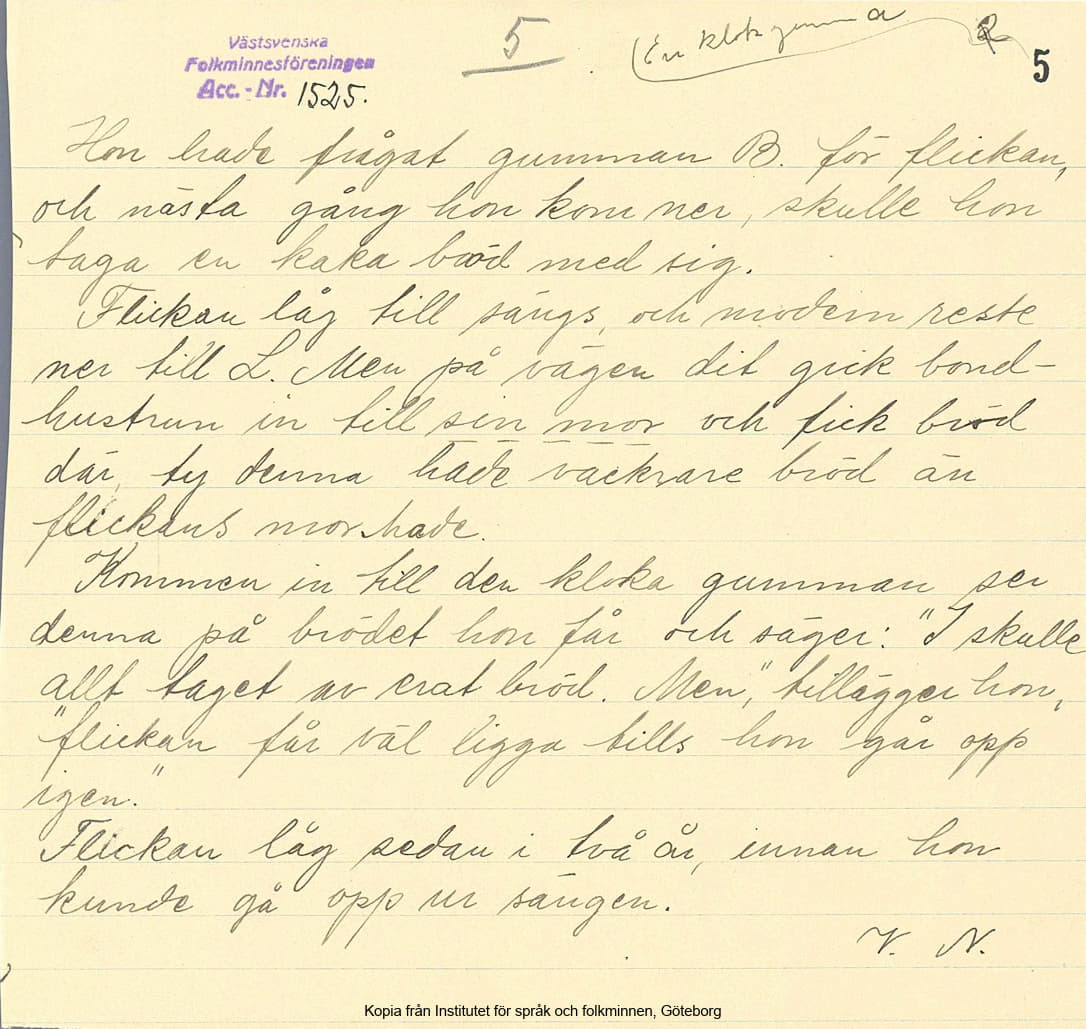 Västsvenska
Folkminnesföreningen
Acc.-Nr. 1525.
5
(En klok gumma
5
Hon hade frågat gumman B. för flickan,
och nästa gång hon kom ner, skulle hon
taga en kaka bröd med sig.
Flickan låg till sängs, och modern reste
ner till L. Men på vägen dit gick bond-
hustrun in till sin mor och fick bröd
där, ty denna hade vackrare bröd än
flickans mor hade.
Kommen in till den kloka gumman ser
denna på brödet hon får och säger: "I skulle
allt taget av erat bröd. Men," tillägger hon,
"flickan får väl ligga tills hon går opp
igen."
Flickan låg sedan i två år, innan hon
kunde gå opp ur sängen.
V. N.
Kopia från Institutet för språk och folkminnen, Göteborg